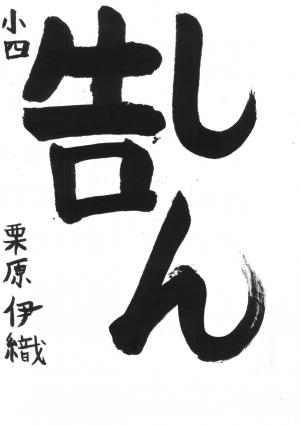 しん告
小四 栗原伊織